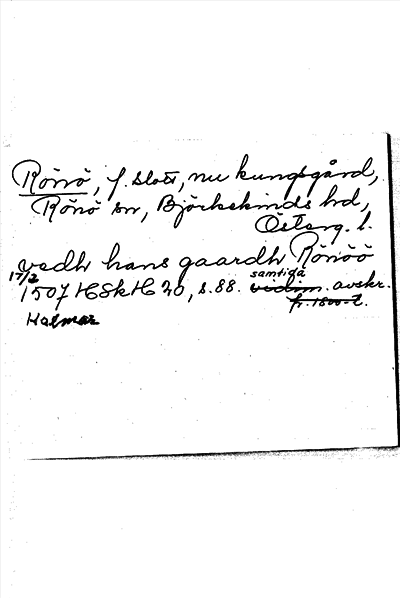 Rönö, f. slott, nu kungsgård,
Rönö sn, Björkekinds hd,
Österg. l.
vedh hans gaardh Rönöö
17/2 samtida
1507 HSkH 20, s. 88. vidim. avskr.
Kalmar fr. 1500-t.